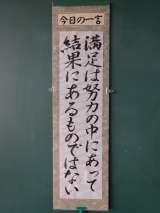 今日の一言
満足は努力の中にあって
結果にあるものではない